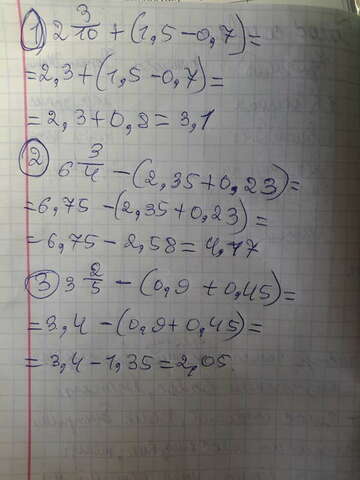 1) 2 3/10 + (1,5 - 0,7) =
= 2,3 + (1,5 - 0,7) =
= 2,3 + 0,8 = 3,1
2) 6 3/4 - (2,35 + 0,23) =
= 6,75 - (2,35 + 0,23) =
= 6,75 - 2,58 = 4,17
3) 3 2/5 - (0,9 + 0,45) =
= 3,4 - (0,9 + 0,45) =
= 3,4 - 1,35 = 2,05